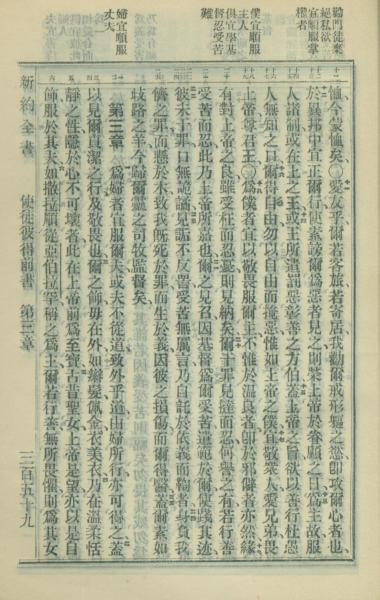 勸門徒棄
絕私欲
宣順服掌
權者
僕宜順服
主人
俱宜學基
督忍受苦
難
婦宜順服
丈夫
恤今蒙恤矣○愛友乎爾若客旅若寄居我勸爾戒形軀之慾卽攻爾心者也
於異邦中宜正爾行使素謗爾爲惡者見之則榮上帝於眷顧之日爲主故服
人諸制或在上之王或王所遣罰惡彰善之方伯蓋上帝之旨欲以善行杜愚
人無知之口爾得自由勿以自由而掩惡惟如上帝之僕宜敬衆人愛兄弟畏
上帝尊君王○爲僕者宜以敬畏服爾主不惟於溫良者卽於邪僻者亦然緣
有對上帝之良雖受枉而忍憂則見納矣爾干罪見撻而忍何譽之有若行善
受苦而忍此乃上帝所嘉也爾之見召因基督爲爾受苦遺範於爾使踐其迹
彼未干罪口無詭譎見詬不反詈受苦無厲言乃自託於依義而鞫者身負我
儕之罪而懸於木致我旣死於罪而生於義因彼之損傷而爾得醫蓋爾素如
歧路之羊今歸爾靈之司牧監督矣
第三章 爲婦者宜服爾夫或夫不從道致外乎道由婦所行亦可得之蓋
以見爾貞潔之行及敬畏也爾之飾毋在外如辮髮佩金衣美衣乃在溫柔恬
靜之性隱於心不可壞者此在上帝前爲至寶古昔聖女上帝是望亦以是自
飾服於其夫如撒拉順從亞伯拉罕稱之爲主爾若行善無所畏懼則爲其女
新約全書 使徒彼得前書 第三章 三百五十九